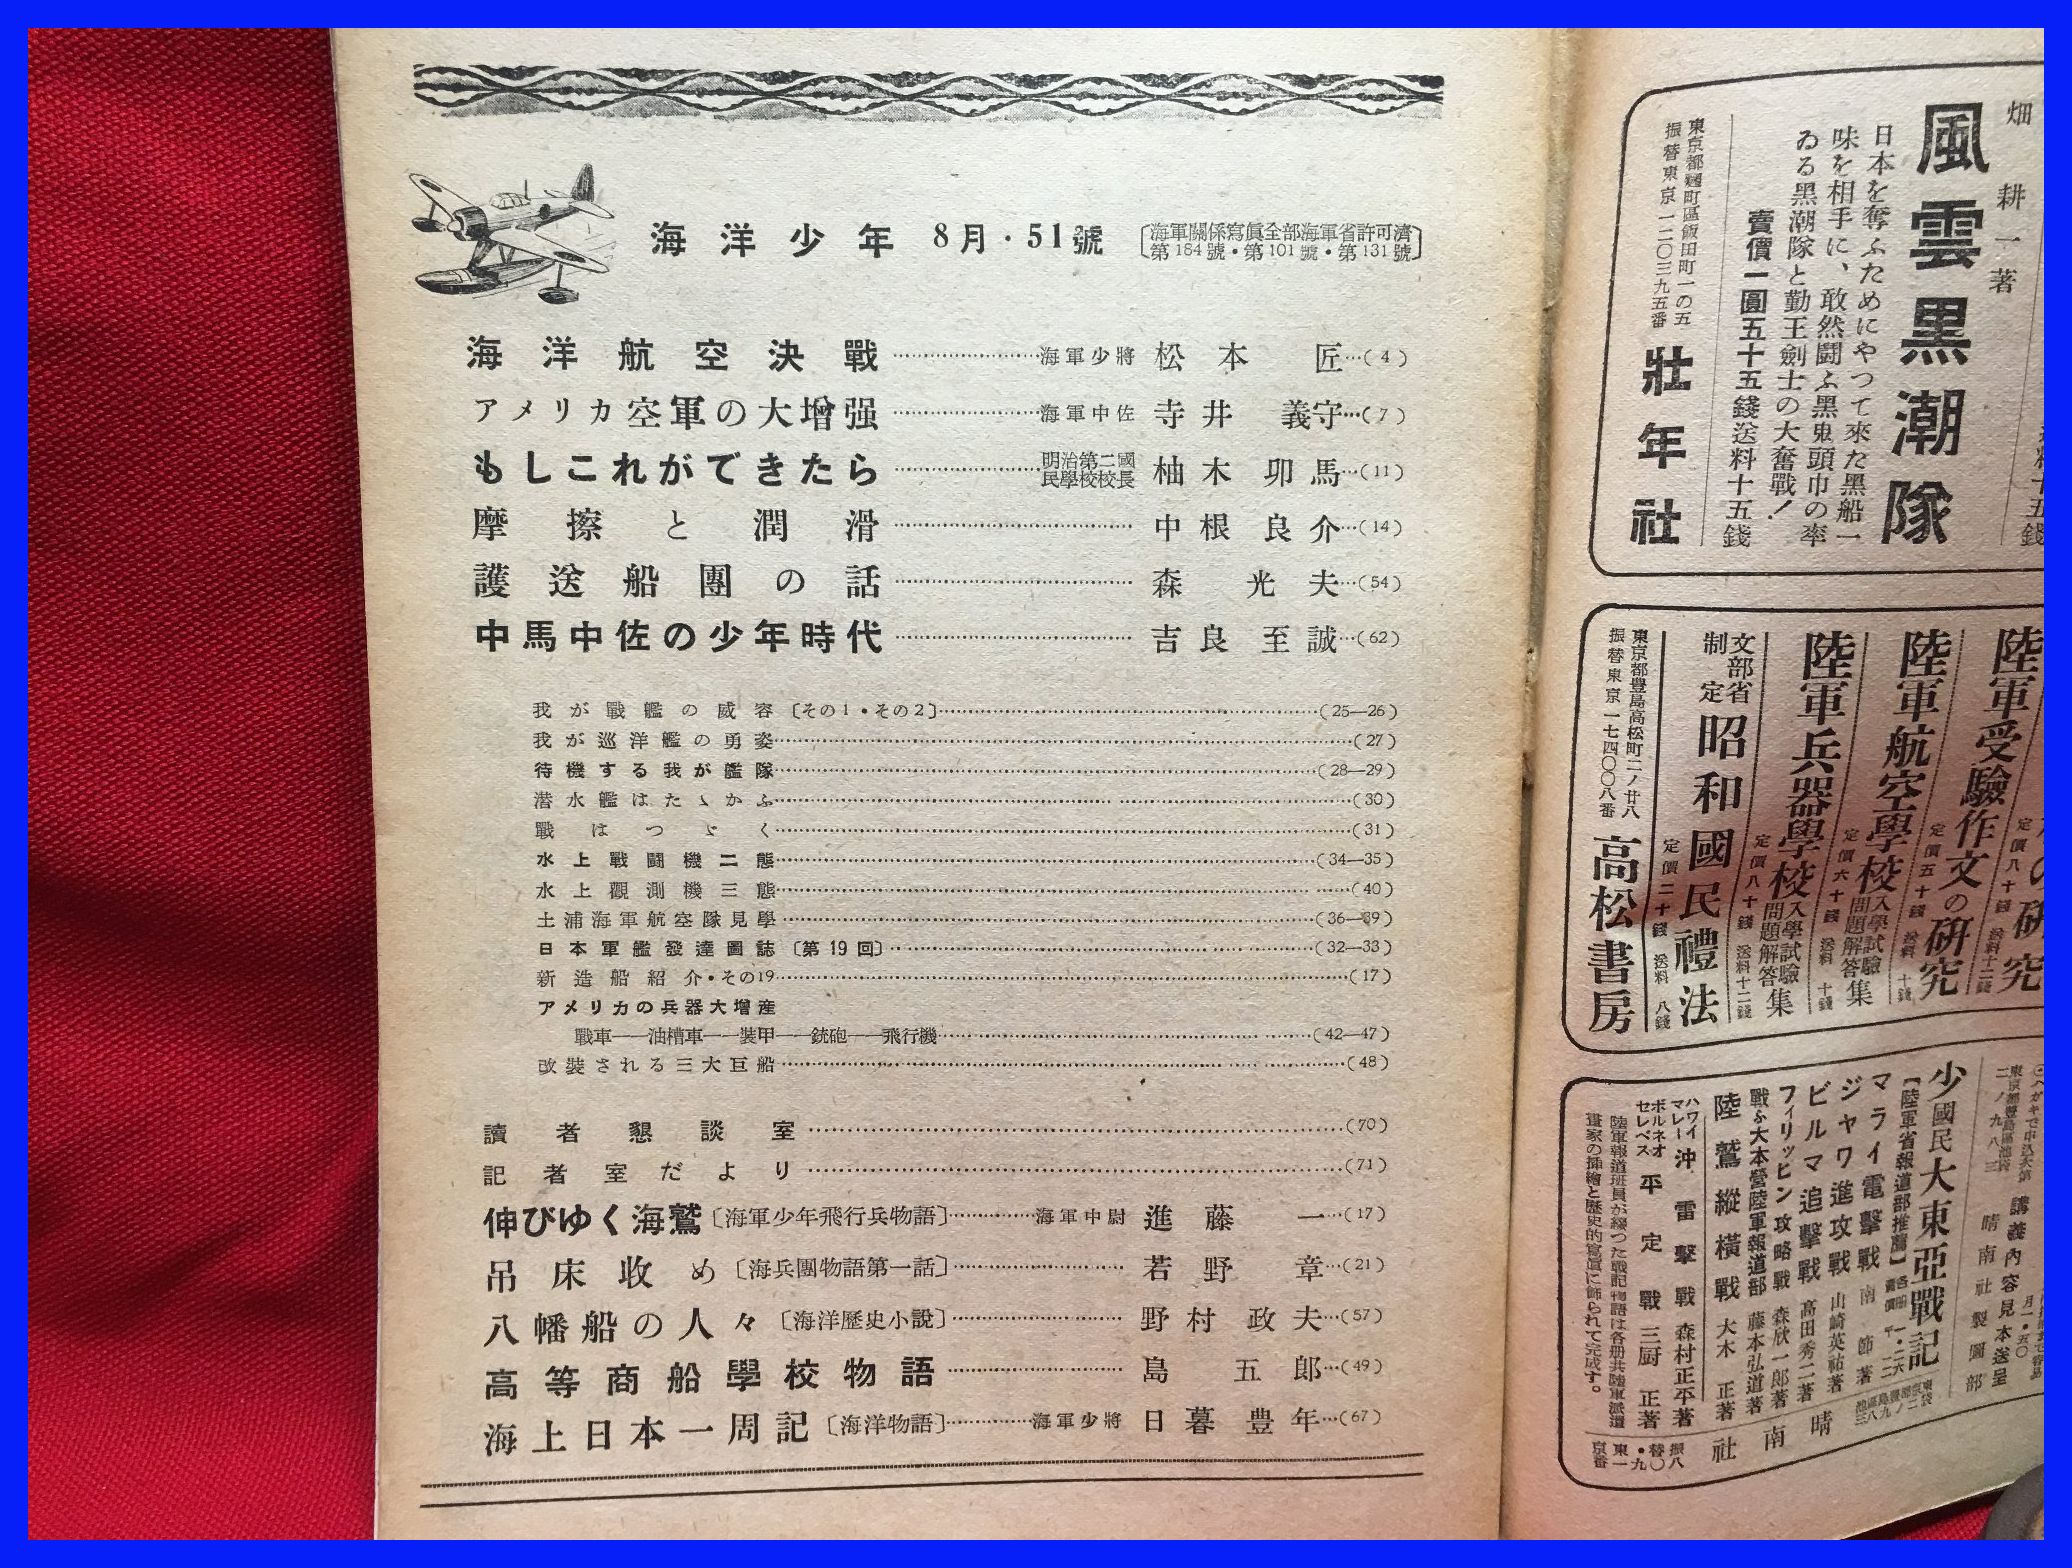 海洋少年 8月・51號
〔海軍關係寫眞全部海軍省許可濟
第184號・第101號・第131號〕
海洋航空決戰……海軍少將 松本匠…(4)
アメリカ空軍の大增强……海軍中佐 寺井義守…(7)
もしこれができたら……明治第二國民學校校長 柚木卯馬…(11)
摩擦と潤滑……中根良介…(14)
護送船團の話……森光夫…(54)
中馬中佐の少年時代……吉良至誠…(62)
我が戰艦の威容〔その1・その2〕……(25—26)
我が巡洋艦の勇姿……(27)
待機する我が艦隊……(28—29)
潜水艦はたゝかふ……(30)
戰はつゞく……(31)
水上戰鬪機二態……(34—35)
水上觀測機三態……(40)
土浦海軍航空隊見學……(36—39)
日本軍艦發達圖誌〔第19回〕……(32—33)
新造船紹介・その19……(17)
アメリカの兵器大增産
戰車——油槽車——裝甲——銃砲——飛行機……(42—47)
改裝される三大巨船……(48)
讀者懇談室……(70)
記者室だより……(71)
伸びゆく海鷲〔海軍少年飛行兵物語〕……海軍中尉 進藤一…(17)
吊床收め〔海兵團物語第一話〕……若野章…(21)
八幡船の人々〔海洋歷史小說〕……野村政夫…(57)
高等商船學校物語……島五郎…(49)
海上日本一周記〔海洋物語〕……海軍少將 日暮豊年…(67)
畑耕一著
風雲黒潮隊
日本を奪ふためにやつて來た黑船一
味を相手に、敢然鬪ふ黑鬼頭巾の率
ゐる黑潮隊と勤王劍士の大奮戰！
賣價一圓五十五錢送料十五錢
東京都麴町區飯田町一の五
振替東京一二〇三九五番
壯年社
陸軍受驗作文の研究 定價五十錢 送料十二錢
陸軍航空學校入學試驗問題解答集 定價六十錢 送料十錢
陸軍兵器學校入學試驗問題解答集 定價八十錢 送料十二錢
文部省制定 昭和國民禮法 定價二十錢 送料八錢
東京都豊島區高松町二ノ廿八
振替東京一七四〇〇八番
高松書房
講義内容見本送呈
晴南社製圖部
少國民大東亞戰記
【陸軍省報道部推薦】
マライ電擊戰 南節著
ジャワ進攻戰 山崎英祐著
ビルマ追擊戰 高田秀二著
フィリッピン攻略戰 森欣一郎著
戰ふ大本營陸軍報道部 藤本弘道著
陸鷲縱横戰 大木正著
ハワイマレー沖雷擊戰 森村正平著
ボルネオセレベス平定戰 三厨正著
陸軍報道班員が綴つた戰記物語は各册共陸軍派遣
畫家の挿繪と歷史的寫眞に飾られて完成す。
晴南社